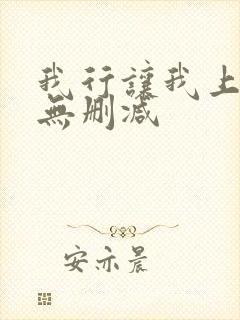 我行讓我上
無删减
安亦晨